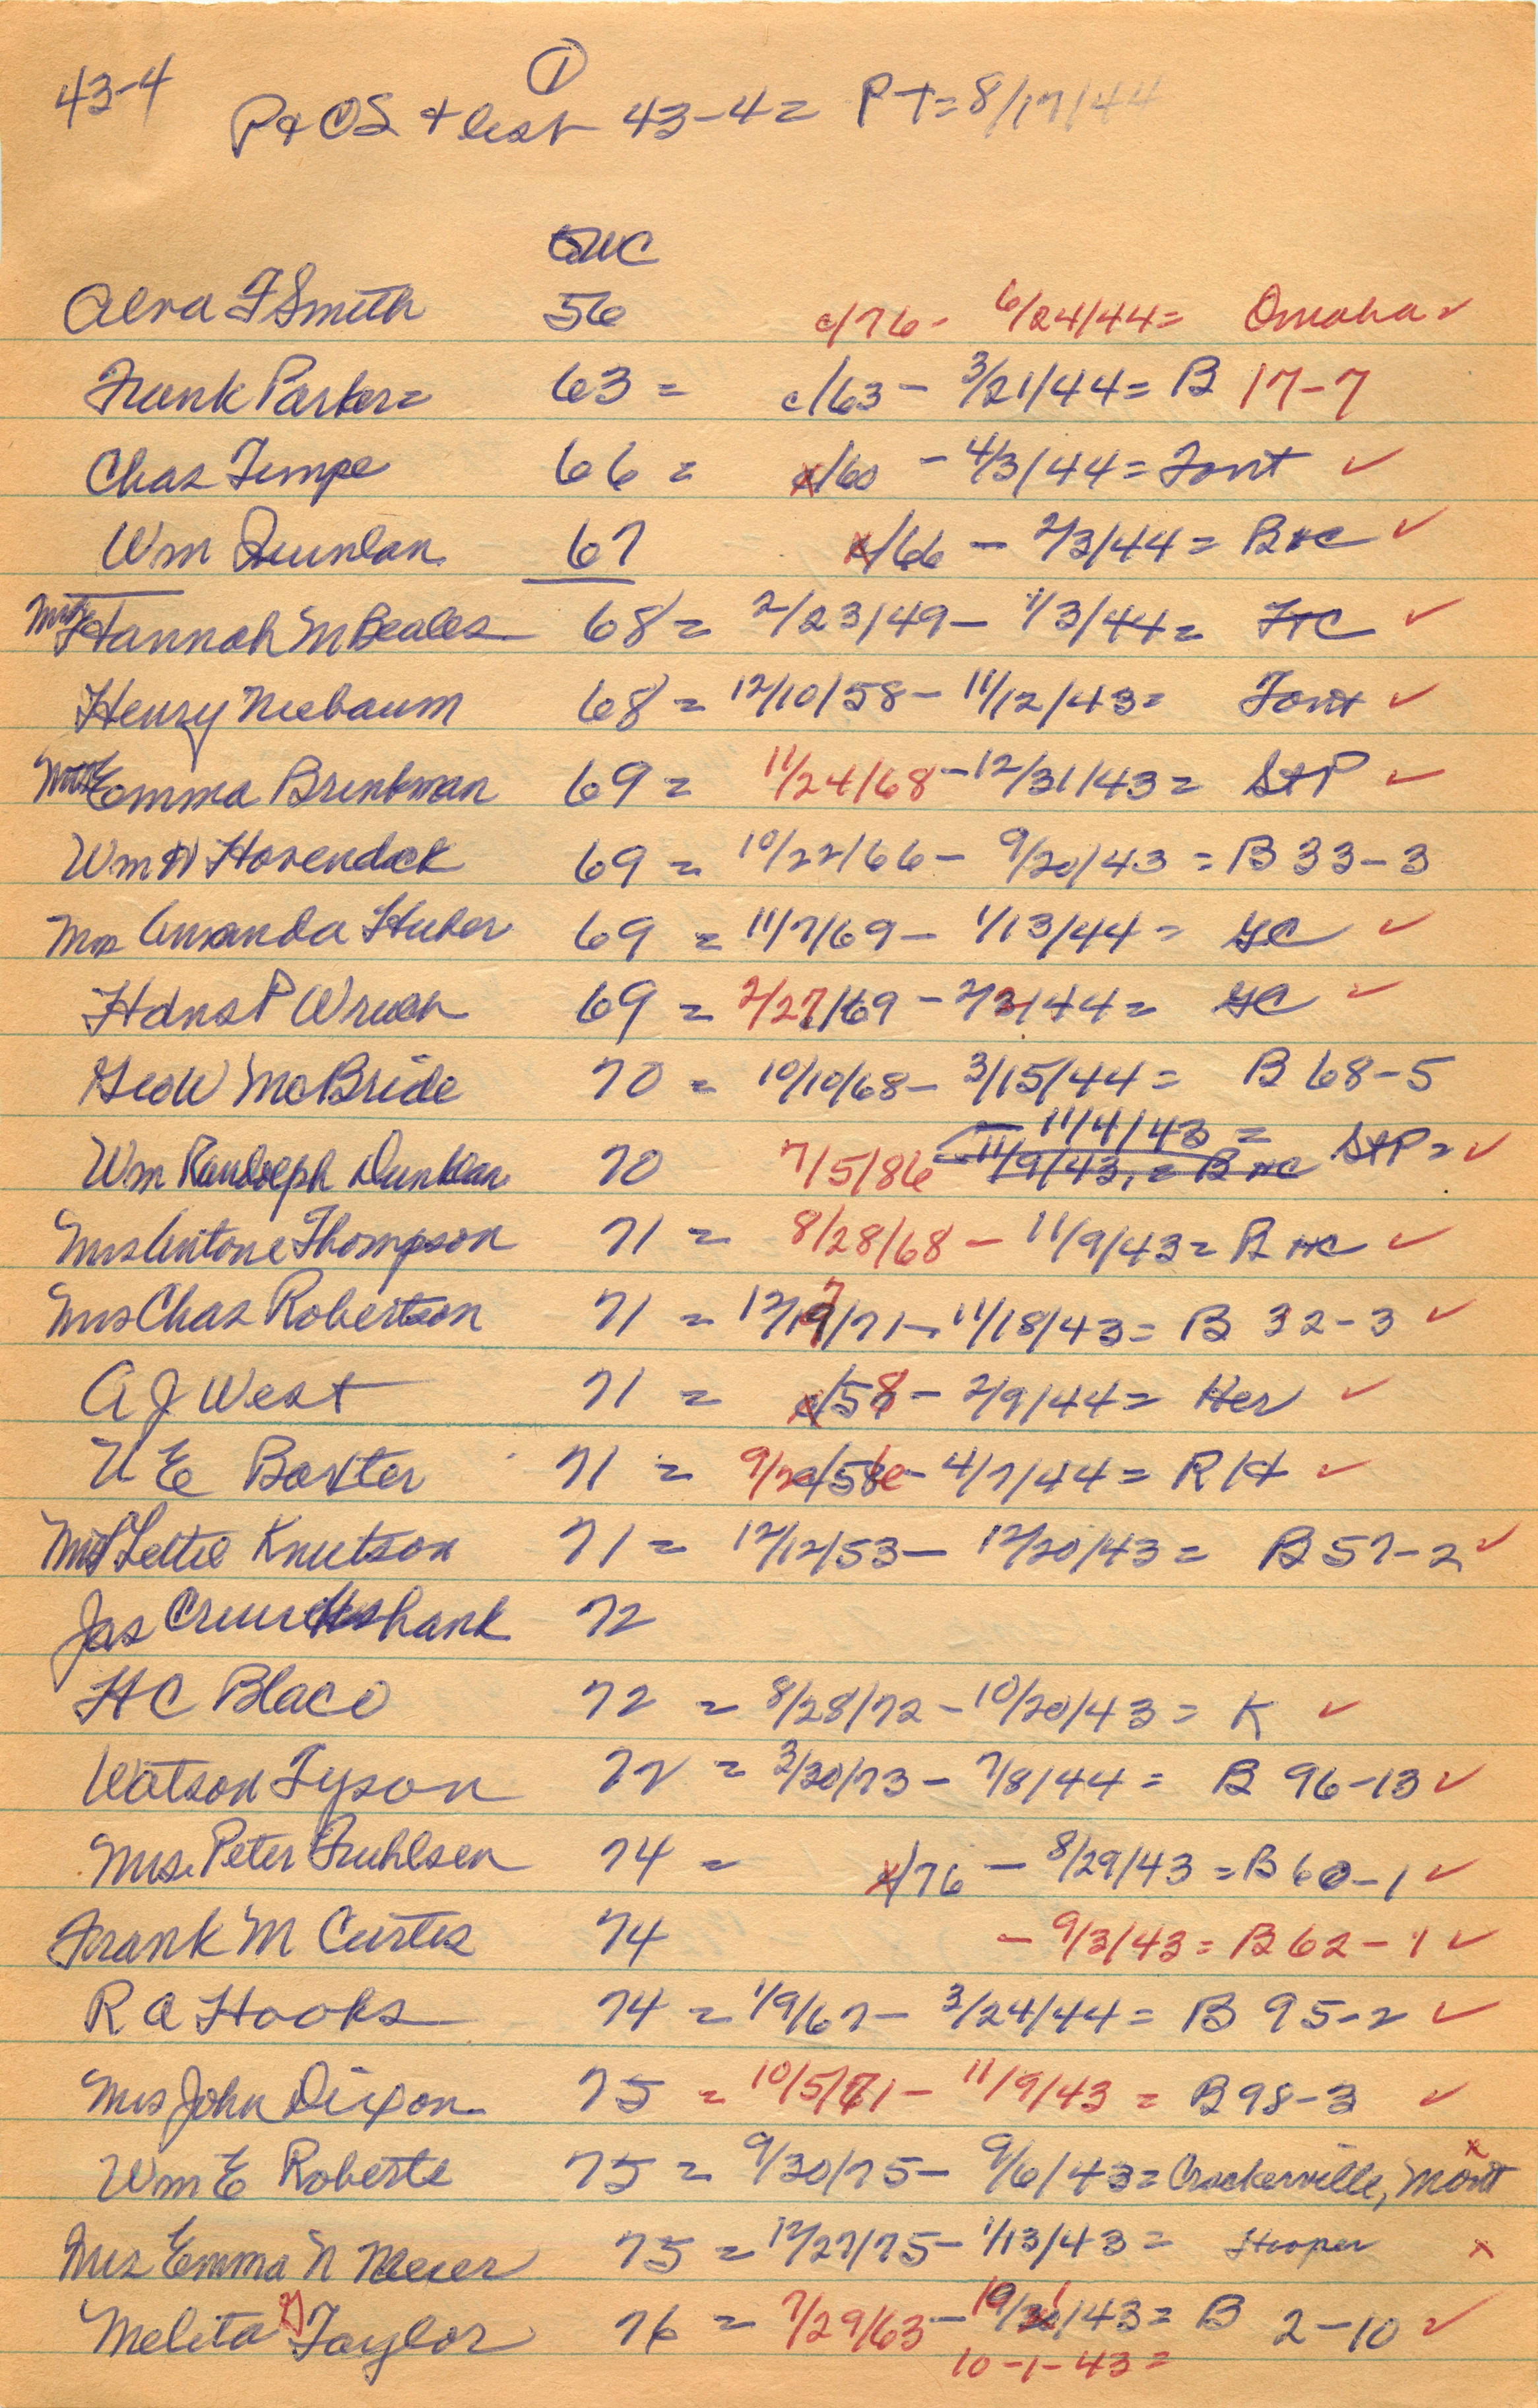 ①
43-4
P & OS + list 43-4 = PT = 8/17/44
WC
Alva F Smith 56 c/76 - 6/24/44 = Omaha ✓
Frank Parker = 63 = c/63 - 3/21/44 = B 17-7
Chas Timpe 66 = c/60 - 4/3/44 = Font ✓
Wm Quinlan 67 c/66 - 2/3/44 = B HC ✓
Mrs Hannah M Beales 68 = 2/23/49 - 1/3/44 = FtC ✓
Henry Niebaum 68 = 12/10/58 - 11/12/43 = Font ✓
Mrs Emma Brinkman 69 = 11/24/68 - 12/31/43 = StP ✓
Wm H Hovendick 69 = 10/22/66 - 9/20/43 = B 33-3
Mrs Amanda Huber 69 = 11/7/69 - 1/13/44 = GC ✓
Hans P Wrich 69 = 2/27/69 - 2/2/44 = GC ✓
Geo W McBride 70 = 10/10/68 - 3/15/44 = B 68-5
- 11/4/43 =
Wm Randolph Dunklau 70 7/5/86 - 11/9/43, = B HC StP = ✓
Mrs Antone Thompson 71 = 8/28/68 - 11/9/43 = B HC ✓
Mrs Chas Robertson 71 = 12/17/71 - 11/18/43 = B 32-3 ✓
A J West 71 = c/58 - 2/9/44 = Her ✓
U E Baxter 71 = 9/20/56 - 4/7/44 = R H ✓
Mrs Lettie Knutson 71 = 12/12/53 - 12/20/43 = B 57-2 ✓
Jas Cruickshank 72
H C Blaco 72 = 8/28/72 - 10/20/43 = K ✓
Watson Tyson 72 = 3/30/73 - 7/8/44 = B 96-13 ✓
Mrs. Peter Fuhlsen 74 = x/76 - 8/29/43 = B 60-1 ✓
Frank M Curtis 74 - 9/3/43 = B 62-1 ✓
R A Hooks 74 = 1/9/67 - 3/24/44 = B 95-2 ✓
Mrs John Dixon 75 = 10/5/71 - 11/9/43 = B 98-3 ✓
Wm E Roberts 75 = 9/30/75 - 9/6/43 = Crackerville, Mont x
Mrs Emma N Meier 75 = 12/27/75 - 1/13/43 = Hooper x
Melita G Taylor 76 = 7/29/63 - 10/1/43 = B 2-10 ✓
10-1-43 =